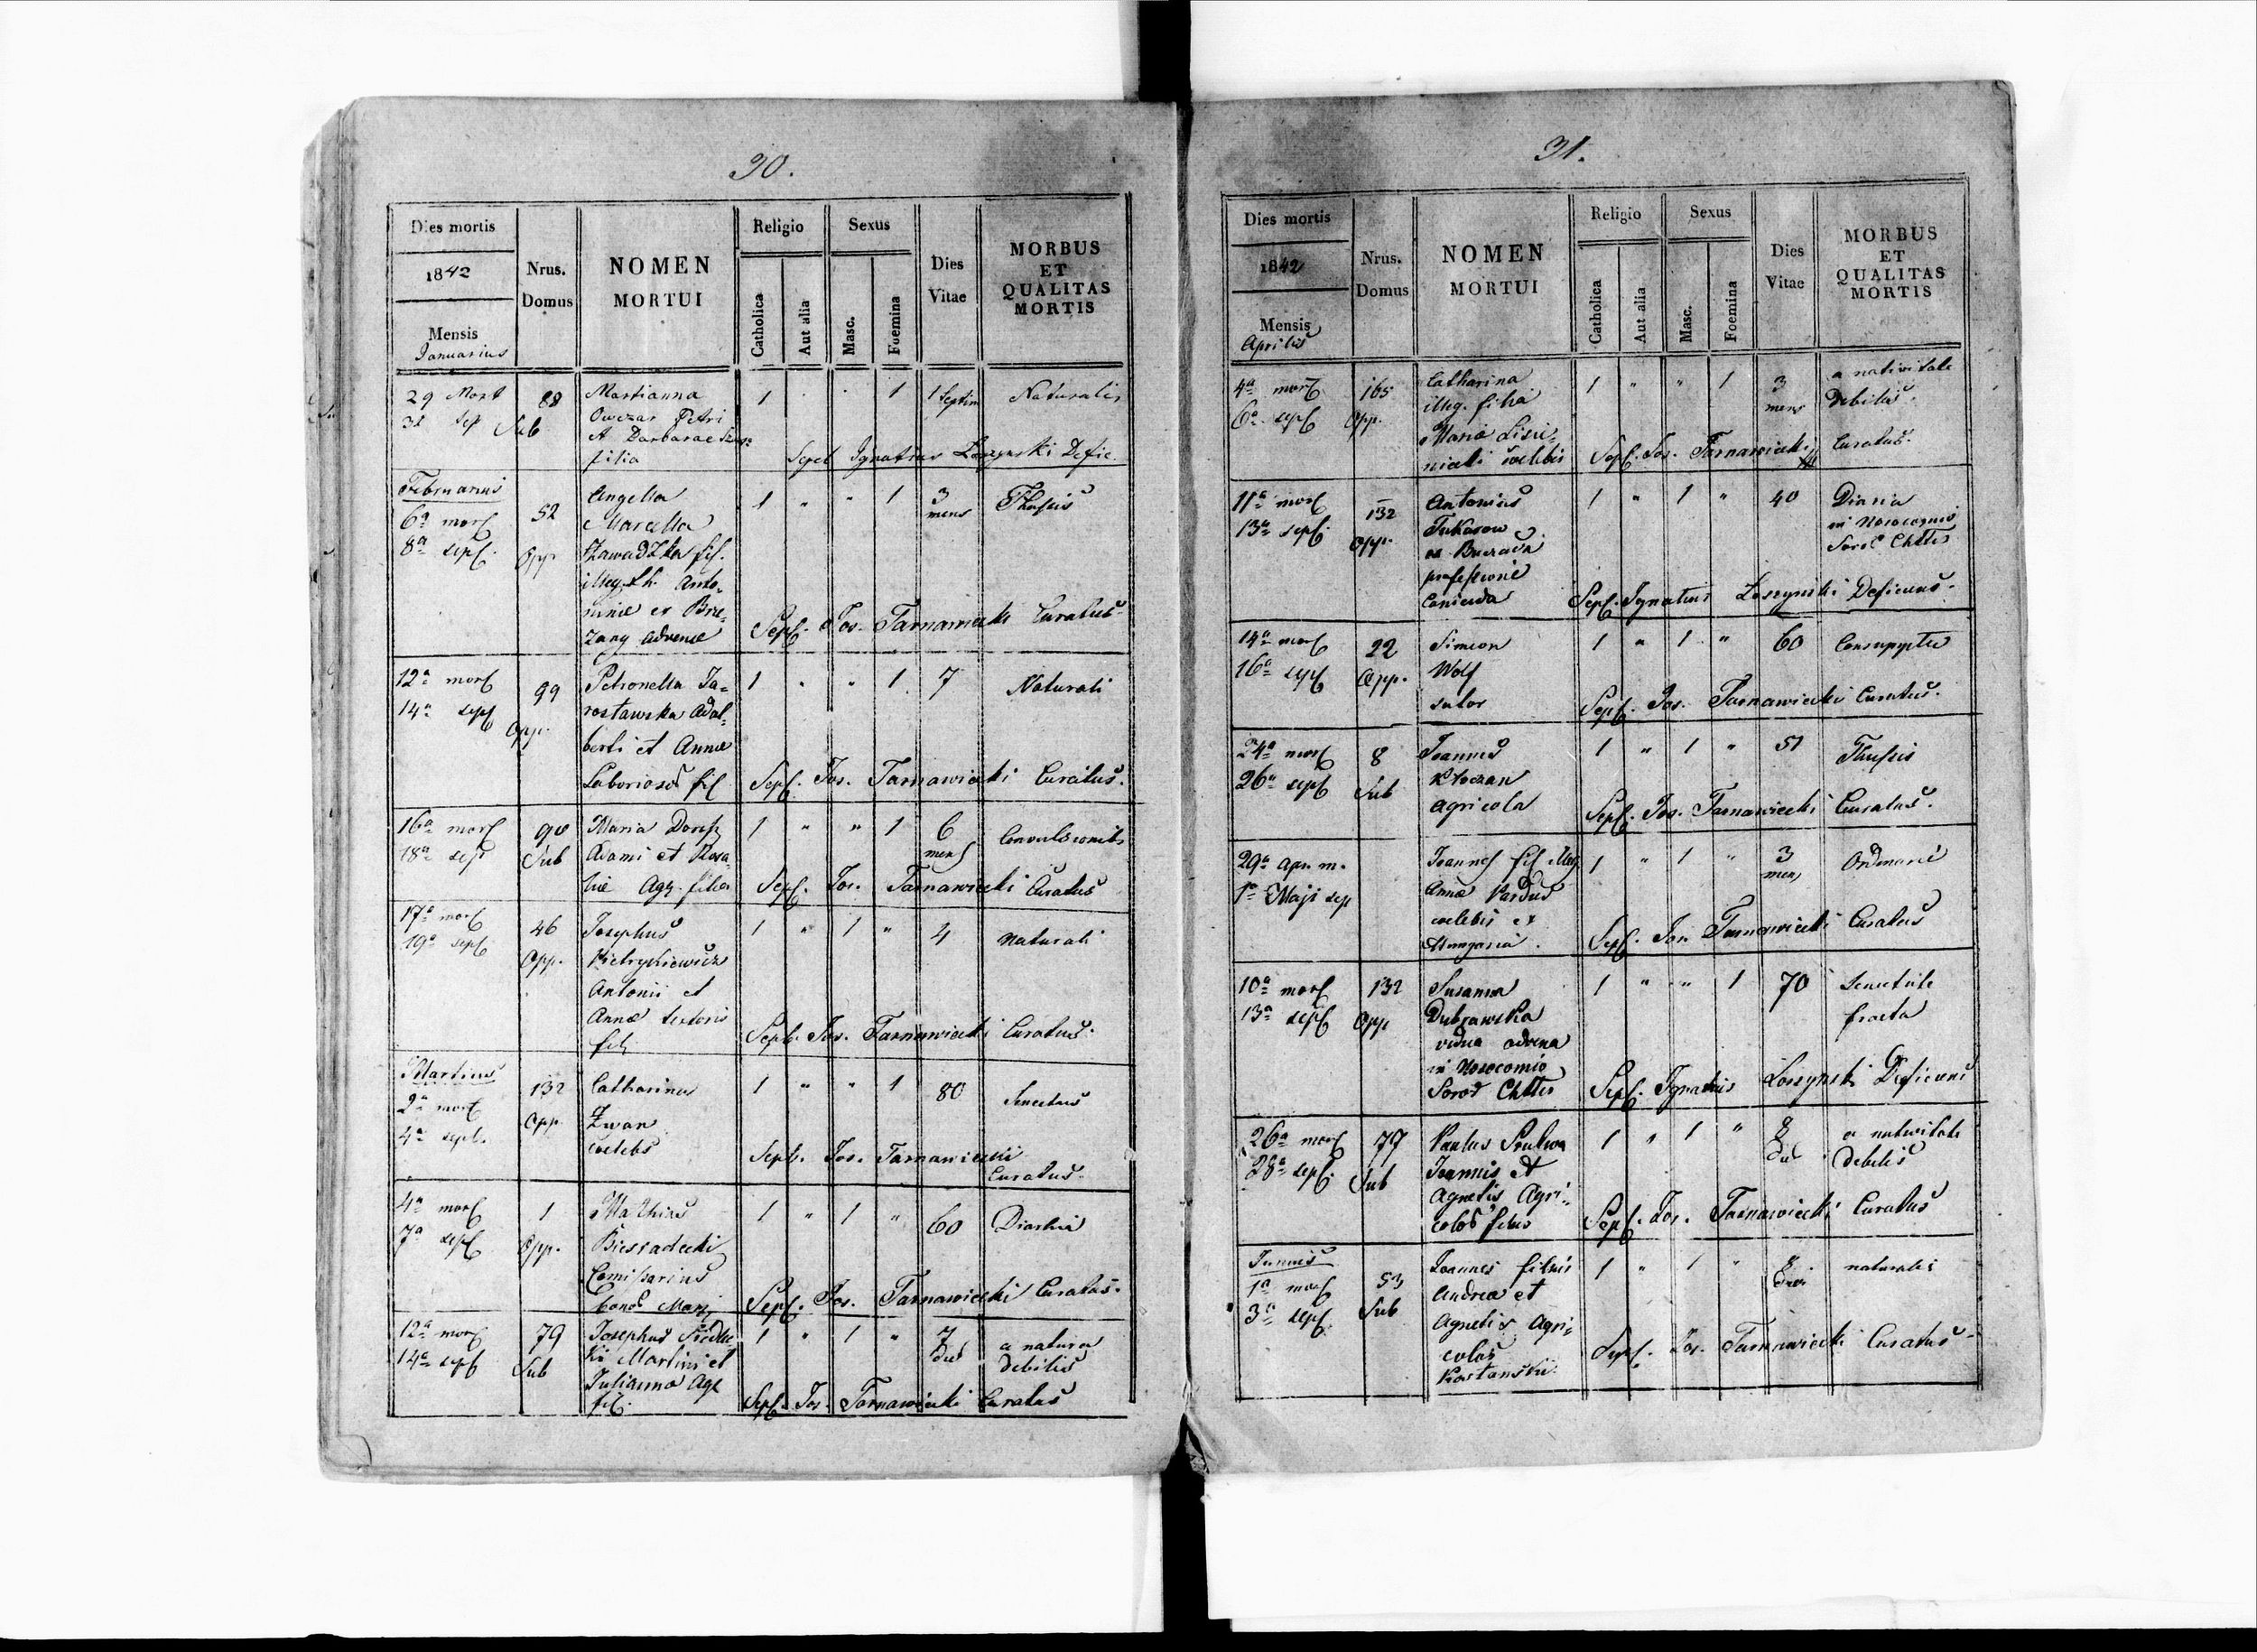 30.
Dies mortis
1842
Mensis
Januarius
Nrus.
Domus
NOMEN
MORTUI
Religio
Catholica
Aut alia
Sexus
Masc.
Foemina
Dies
Vitae
MORBUS
ET
QUALITAS
MORTIS
29 Mort 88 Marianna 1 1 1 Septim Naturalis
31 Sep Sub Owczar Petri
et Barbarae
filia Sepel Ignatius Łoszynski Defic.
Februarius Angella 1 " " 1 3 Thussis
6a mort 52 Marcella mens
8a sepl. Opp. Zawadzka fil.
illeg. th. Anto-
ninae ex Brze-
zany advenae Sepl. Jos. Tarnawiecki Curatus
12a mort 99 Petronella Ja- 1 " " 1 7 Naturali
14a sepl Opp. rosławska Adal-
berti et Annae
Laborios fil Sepl. Jos. Tarnawiecki Curatus.
16a mort 90 Maria 1 " " 1 6 Convulsionib
18a sept Sub Adami et Rosa- mens
liae Agr. filia Sepl. Jos. Tarnawiecki Curatus
17a mort 46 Josephus 1 " 1 " 4 naturali
19a sepl Opp. Pietrykiewicz
Antonii et
Annae textoris
fil Sepl. Jos. Tarnawiecki Curatus.
Martius 132 Catharina 1 " " 1 80 Senectus
2a mort Opp Zwan
4a sepl. coelebs Sepl. Jos. Tarnawiecki
Curatus.
4a mort 1 Mathias 1 " 1 " 60 Diarhia
7a sepl Opp. Biesiadecki
Comissarius
bonor Sepl. Jos. Tarnawiecki Curatus.
12a mort 79 Josephus Siedlec- 1 " 1 " 7 a natura
14a sepl Sub ki Martini et die debilis
Julianna Agr
fil. Sepl. Jos. Tarnawiecki Curatus
31.
Dies mortis
1842
Mensis
Aprilis
Nrus.
Domus
NOMEN
MORTUI
Religio
Catholica
Aut alia
Sexus
Masc.
Foemina
Dies
Vitae
MORBUS
ET
QUALITAS
MORTIS
4a mort 165 Catharina 1 " " 1 3 a nativitate
6a sepl Opp. illeg. filia mens debilis.
Maria Lisie-
niecki coelebis Sepl. Jos. Tarnawiecki Curatus.
11a mort 132 Antonius 1 " 1 " 40 Diaria
13a sepl. Opp. Tukasow in Nosocomio
ex Buczacz Soror Chttis
professione
Canicida Sepl. Ignatius Łoszynski Deficiens.
14a mort 22 Simeon 1 " 1 " 60 Consumptio
16a sepl Opp. Wolf
sutor Sepl. Jos. Tarnawiecki Curatus.
24a mort 8 Joannes 1 " 1 " 51 Thussis
26a sepl Sub Kłoczan
agricola Sepl. Jos. Tarnawiecki Curatus.
29a Apr. m. Joannes fil illeg 1 " 1 " 3 Ordinarie
1a Maji sep Annae Pardus mens
coelebis ex
Hungaria. Sepl. Jos. Tarnawiecki Curatus
10a mort 132 Susanna 1 " " 1 70 Senectute
13a sepl Opp Dubrawska fracta
vidua advena
in Nosocomio
Soror Chttis Sepl. Ignatius Łoszynski Deficiens
26a mort 77 Paulus 1 " 1 " 8 a nativitate
28a sepl. Sub Joannis et die debilis
Agnetis Agri-
colar filius Sepl. Jos. Tarnawiecki Curatus
Junius Joannes filius 1 " 1 " 8 naturalis
1a mort 53 Andreae et dies
3a sepl. Sub Agnetis Agri-
colar
Kostanski Sepl. Jos. Tarnawiecki Curatus